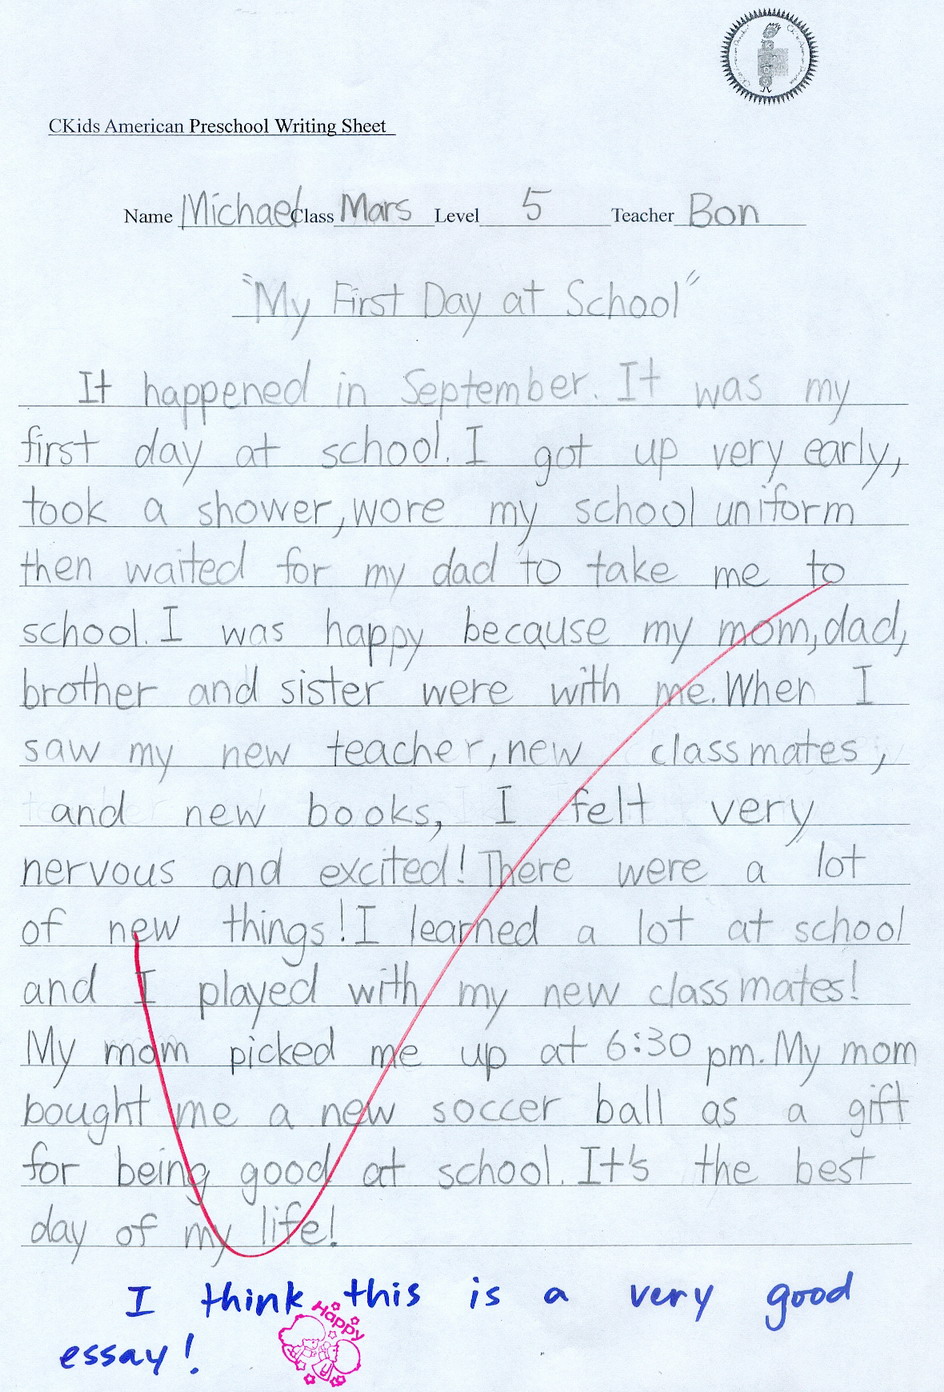 CKids American Preschool Writing Sheet
Name Michael Class Mars Level 5 Teacher Bon
"My First Day at School"
It happened in September. It was my
first day at school. I got up very early,
took a shower, wore my school uniform
then waited for my dad to take me to
school. I was happy because my mom, dad,
brother and sister were with me. When I
saw my new teacher, new classmates,
and new books, I felt very
nervous and excited! There were a lot
of new things! I learned a lot at school
and I played with my new classmates!
My mom picked me up at 6:30 pm. My mom
bought me a new soccer ball as a gift
for being good at school. It's the best
day of my life!
I think this is a very good
essay!
Happy